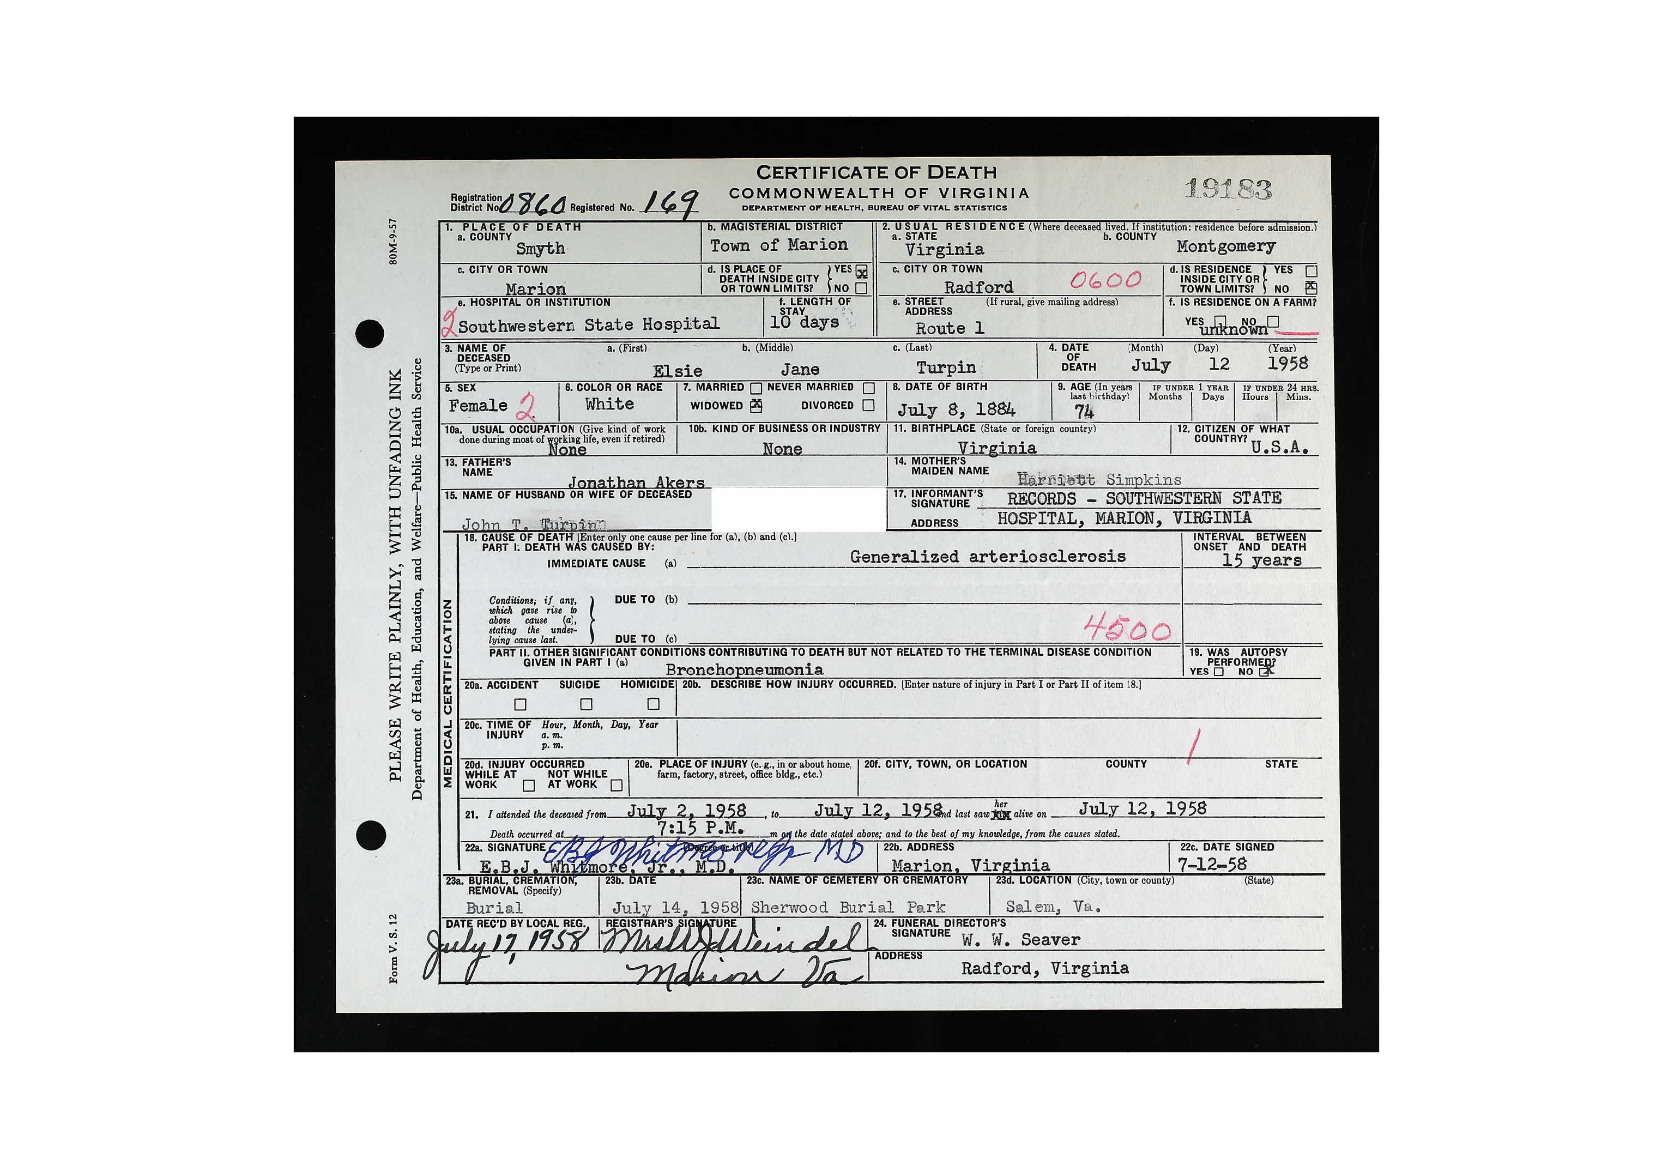 CERTIFICATE OF DEATH
COMMONWEALTH OF VIRGINIA
DEPARTMENT OF HEALTH, BUREAU OF VITAL STATISTICS
19183
Registration District No. 0860 Registered No. 169
80M-9-57
1. PLACE OF DEATH
a. COUNTY Smyth
b. MAGISTERIAL DISTRICT Town of Marion
2. USUAL RESIDENCE (Where deceased lived. If institution: residence before admission.)
a. STATE Virginia
b. COUNTY Montgomery
c. CITY OR TOWN Marion
d. IS PLACE OF DEATH INSIDE CITY OR TOWN LIMITS? YES X NO
c. CITY OR TOWN Radford 0600
d. IS RESIDENCE INSIDE CITY OR TOWN LIMITS? YES NO X
e. HOSPITAL OR INSTITUTION
2 Southwestern State Hospital
f. LENGTH OF STAY 10 days
e. STREET ADDRESS (If rural, give mailing address) Route 1
f. IS RESIDENCE ON A FARM? YES NO unknown
3. NAME OF DECEASED (Type or Print)
a. (First) Elsie
b. (Middle) Jane
c. (Last) Turpin
4. DATE OF DEATH (Month) (Day) (Year) July 12 1958
5. SEX Female 2
6. COLOR OR RACE White
7. MARRIED NEVER MARRIED WIDOWED X DIVORCED
8. DATE OF BIRTH July 8, 1884
9. AGE (In years last birthday) 74
IF UNDER 1 YEAR Months Days
IF UNDER 24 HRS. Hours Mins.
10a. USUAL OCCUPATION (Give kind of work done during most of working life, even if retired) None
10b. KIND OF BUSINESS OR INDUSTRY None
11. BIRTHPLACE (State or foreign country) Virginia
12. CITIZEN OF WHAT COUNTRY? U.S.A.
13. FATHER'S NAME Jonathan Akers
14. MOTHER'S MAIDEN NAME Harriett Simpkins
15. NAME OF HUSBAND OR WIFE OF DECEASED
John T. Turpin
17. INFORMANT'S SIGNATURE RECORDS - SOUTHWESTERN STATE
ADDRESS HOSPITAL, MARION, VIRGINIA
MEDICAL CERTIFICATION
18. CAUSE OF DEATH [Enter only one cause per line for (a), (b) and (c).]
PART I. DEATH WAS CAUSED BY:
IMMEDIATE CAUSE (a) Generalized arteriosclerosis
INTERVAL BETWEEN ONSET AND DEATH
15 years
Conditions, if any, which gave rise to above cause (a), stating the underlying cause last.
DUE TO (b)
DUE TO (c) 4500
PART II. OTHER SIGNIFICANT CONDITIONS CONTRIBUTING TO DEATH BUT NOT RELATED TO THE TERMINAL DISEASE CONDITION GIVEN IN PART I (a)
Bronchopneumonia
19. WAS AUTOPSY PERFORMED? YES NO X
20a. ACCIDENT SUICIDE HOMICIDE
20b. DESCRIBE HOW INJURY OCCURRED. [Enter nature of injury in Part I or Part II of item 18.]
20c. TIME OF INJURY Hour, Month, Day, Year a. m. p. m.
1
20d. INJURY OCCURRED WHILE AT WORK NOT WHILE AT WORK
20e. PLACE OF INJURY (e. g., in or about home, farm, factory, street, office bldg., etc.)
20f. CITY, TOWN, OR LOCATION COUNTY STATE
21. I attended the deceased from July 2, 1958, to July 12, 1958 and last saw her alive on July 12, 1958
Death occurred at 7:15 P.M. m on the date stated above; and to the best of my knowledge, from the causes stated.
22a. SIGNATURE (Degree or title)
EBJ Whitmore Jr MD
E.B.J. Whitmore, Jr., M.D.
22b. ADDRESS Marion, Virginia
22c. DATE SIGNED 7-12-58
23a. BURIAL, CREMATION, REMOVAL (Specify) Burial
23b. DATE July 14, 1958
23c. NAME OF CEMETERY OR CREMATORY Sherwood Burial Park
23d. LOCATION (City, town or county) (State) Salem, Va.
DATE REC'D BY LOCAL REG. July 17, 1958
REGISTRAR'S SIGNATURE
Marion Va
24. FUNERAL DIRECTOR'S SIGNATURE W. W. Seaver
ADDRESS Radford, Virginia
PLEASE WRITE PLAINLY, WITH UNFADING INK
Department of Health, Education, and Welfare—Public Health Service
Form V. S. 12